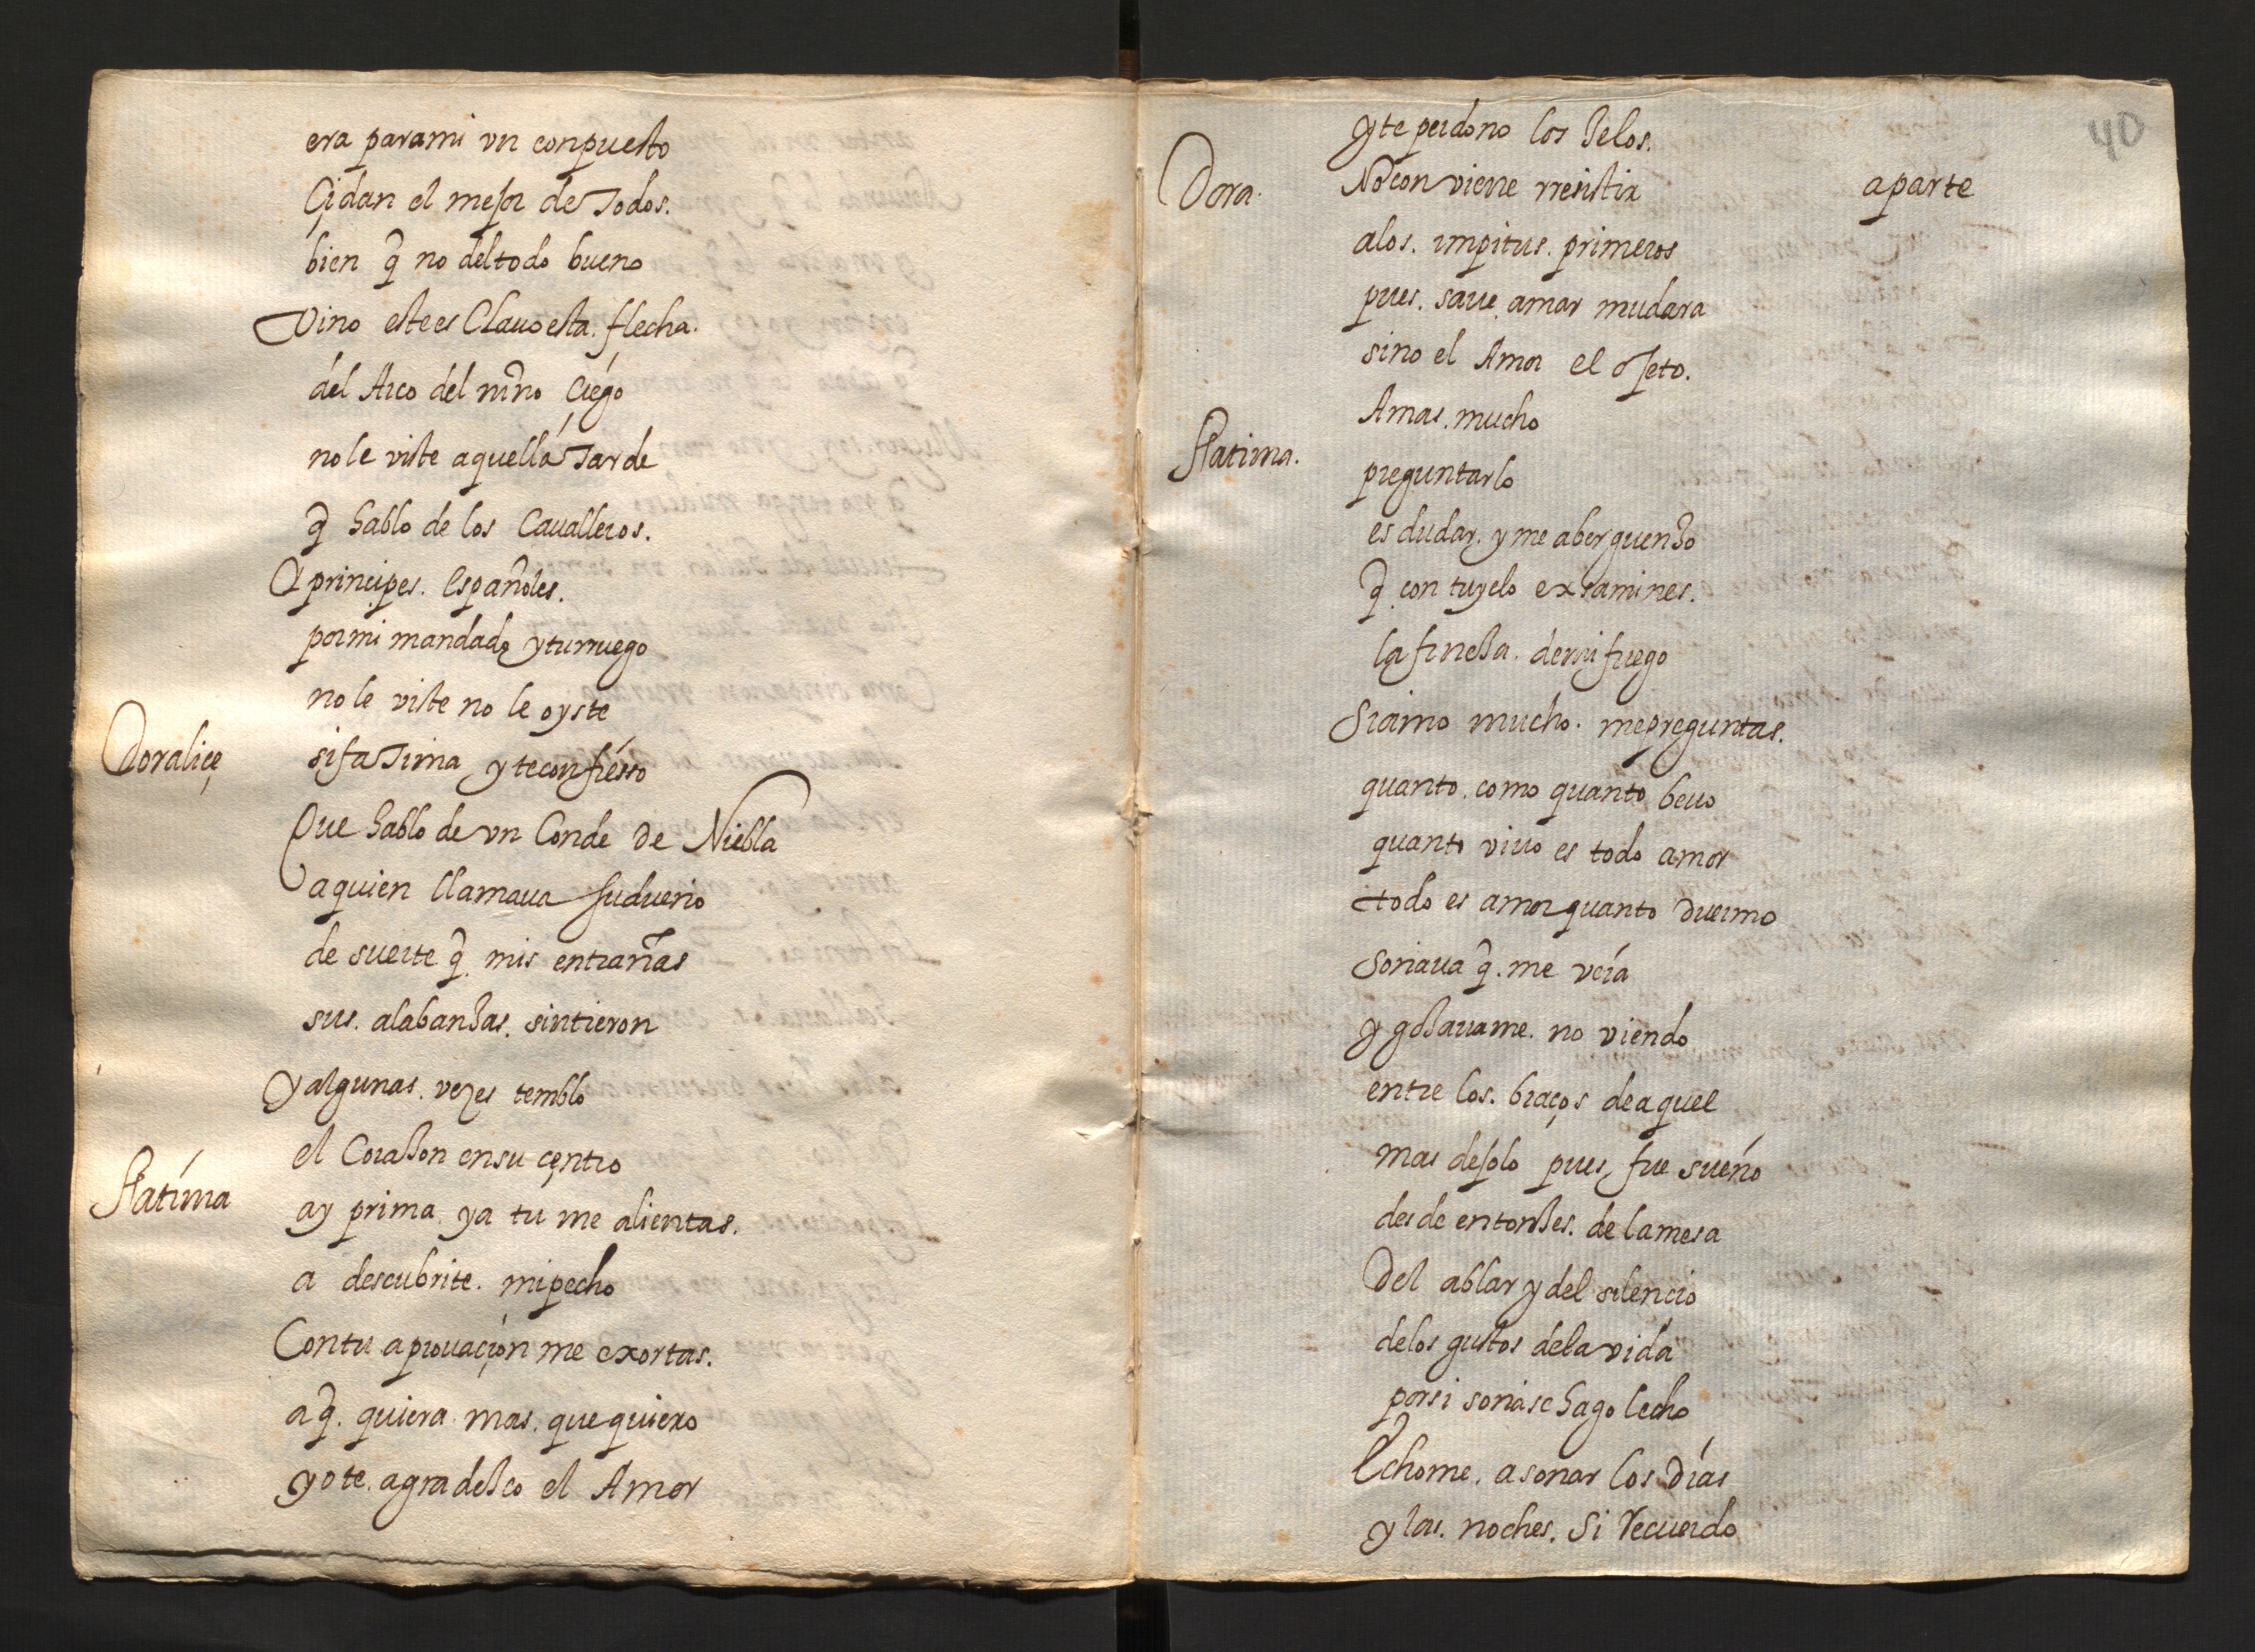 era parami vn conpuesto
Çidan el mejor de Todos.
bien q̃ no deltodo bueno
Vino estees Clauo esta. flecha.
del Arco del niño Çiego
nole viste aquella Tarde
q̃ hablo de los Caualleros.
A prinçipes. españoles.
pormi mandado yturruego
nole viste no le oyste
Doraliçe
sifaTima y teconfiesso
Que hablo de vn Conde de Niebla
aquien llamaua suduenio
de suerte q̃. mis entrañas
sus. alabanzas. sintieron
yalgunas. vezes temblo
el Corazon ensu çentro
ffatima
ay prima. ya tu me alientas.
a descubrite. mipecho
Contu aprouaçion me exortas.
aq̃. quiera. mas. que quiero
yo te. agradesco el Amor
40
yte perdono los zelos.
Dora.
No con viene rresistir
aparte
alos. impitus. primeros
pues. saue. amar mudara
sino el Amor el ojeto.
Amas. mucho
ffatima.
preguntarlo
es dudar. y me aberguenzo
q̃. con tuyelo exsamines.
la fineza. demi fuego
Siamo mucho. mepreguntas.
quanto. como quanto beuo
quanto viuo es todo amor
todo es amor quanto duermo
Soniaua q̃. me veia
y gozauame. no viendo
entre los. braços deaquel
mas desolo pues fue sueño
desde entonzes. de lamesa
Del ablar y del silencio
delos gustos dela vida
porsi soniase hago lecho
Echome. asonar los Días
y las. noches. Si recuerdo